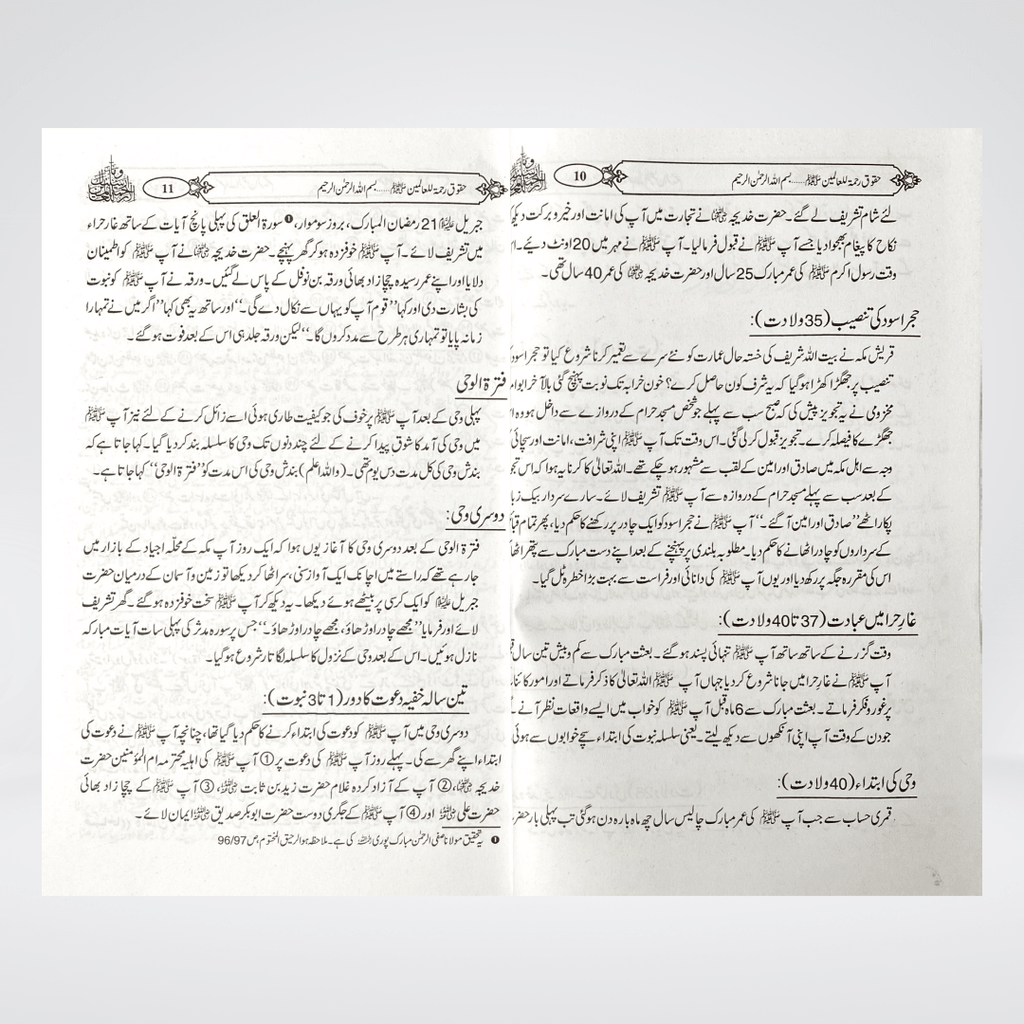 10
حقوق رحمۃ للعالمین ﷺ......بسم اللہ الرحمٰن الرحیم
لئے شام تشریف لے گئے۔ حضرت خدیجہ رضی اللہ عنہا نے تجارت میں آپ کی امانت اور خیر و برکت
نکاح کا پیغام بھجوا دیا جسے آپ ﷺ نے قبول فرمالیا۔ آپ ﷺ نے مہر میں 20 اونٹ دیئے۔
وقت رسول اکرم ﷺ کی عمر مبارک 25 سال اور حضرت خدیجہ رضی اللہ عنہا کی عمر 40 سال تھی۔
حجر اسود کی تنصیب (35 ولادت):
قریش مکہ نے بیت اللہ شریف کی خستہ حال عمارت کو نئے سرے سے تعمیر کرنا شروع کیا تو حجر اسود
تنصیب پر جھگڑا کھڑا ہوگیا کہ یہ شرف کون حاصل کرے؟ خون خرابہ تک نوبت پہنچ گئی بالآخر
مخزومی نے یہ تجویز پیش کی کہ صبح سب سے پہلے جو شخص مسجد حرام کے دروازے سے داخل ہو وہ
جھگڑے کا فیصلہ کرے۔ تجویز قبول کرلی گئی۔ اس وقت تک آپ ﷺ اپنی شرافت، امانت اور سچائی
وجہ سے اہل مکہ میں صادق اور امین کے لقب سے مشہور ہوچکے تھے۔ اللہ تعالیٰ کا کرنا یہ ہوا کہ اس
کے بعد سب سے پہلے مسجد حرام کے دروازہ سے آپ ﷺ تشریف لائے۔ سارے سردار بیک
پکار اٹھے ”صادق اور امین آگئے۔“ آپ ﷺ نے حجر اسود کو ایک چادر پر رکھنے کا حکم دیا، پھر تمام
کے سرداروں کو چادر اٹھانے کا حکم دیا۔ مطلوبہ بلندی پر پہنچنے کے بعد اپنے دست مبارک سے پتھر
اس کی مقررہ جگہ پر رکھ دیا اور یوں آپ ﷺ کی دانائی اور فراست سے بہت بڑا خطرہ ٹل گیا۔
غارِ حرا میں عبادت (37 تا 40 ولادت):
وقت گزرنے کے ساتھ ساتھ آپ ﷺ تنہائی پسند ہوگئے۔ بعثت مبارک سے کم و بیش تین سال
آپ ﷺ نے غارِ حرا میں جانا شروع کردیا جہاں آپ ﷺ اللہ تعالیٰ کا ذکر فرماتے اور امور
پر غور و فکر فرماتے۔ بعثت مبارک سے 6 ماہ قبل آپ ﷺ کو خواب میں ایسے واقعات نظر آنے
جو دن کے وقت آپ اپنی آنکھوں سے دیکھ لیتے۔ یعنی سلسلہ نبوت کی ابتداء سچے خوابوں سے ہوئی
وحی کی ابتداء (40 ولادت):
قمری حساب سے جب آپ ﷺ کی عمر مبارک چالیس سال چھ ماہ بارہ دن ہوگئی تب پہلی بار
11
حقوق رحمۃ للعالمین ﷺ......بسم اللہ الرحمٰن الرحیم
جبریل علیہ السلام 21 رمضان المبارک، بروز سوموار، ❶ سورۃ العلق کی پہلی پانچ آیات کے ساتھ غار حراء
میں تشریف لائے۔ آپ ﷺ خوفزدہ ہوکر گھر پہنچے۔ حضرت خدیجہ رضی اللہ عنہا نے آپ ﷺ کو اطمینان
دلایا اور اپنے عمر رسیدہ چچا زاد بھائی ورقہ بن نوفل کے پاس لے گئیں۔ ورقہ نے آپ ﷺ کو نبوت
کی بشارت دی اور کہا ”قوم آپ کو یہاں سے نکال دے گی۔“ اور ساتھ یہ بھی کہا ”اگر میں نے تمہارا
زمانہ پایا تو تمہاری ہر طرح سے مدد کروں گا۔“ لیکن ورقہ جلد ہی اس کے بعد فوت ہوگئے۔
فترۃ الوحی
پہلی وحی کے بعد آپ ﷺ پر خوف کی جو کیفیت طاری ہوئی اسے زائل کرنے کے لئے نیز آپ ﷺ
میں وحی کی آمد کا شوق پیدا کرنے کے لئے چند دنوں تک وحی کا سلسلہ بند کردیا گیا۔ کہا جاتا ہے کہ
بندش وحی کی کل مدت دس یوم تھی۔ (واللہ اعلم) بندش وحی کی اس مدت کو ”فترۃ الوحی“ کہا جاتا ہے۔
دوسری وحی:
فترۃ الوحی کے بعد دوسری وحی کا آغاز یوں ہوا کہ ایک روز آپ مکہ کے محلّہ اجیاد کے بازار میں
جارہے تھے کہ راستے میں اچانک ایک آواز سنی، سر اٹھا کر دیکھا تو زمین و آسمان کے درمیان حضرت
جبریل علیہ السلام کو ایک کرسی پر بیٹھے ہوئے دیکھا۔ یہ دیکھ کر آپ ﷺ سخت خوفزدہ ہوگئے۔ گھر تشریف
لائے اور فرمایا ”مجھے چادر اوڑھاؤ، مجھے چادر اوڑھاؤ۔“ جس پر سورہ مدثر کی پہلی سات آیات مبارکہ
نازل ہوئیں۔ اس کے بعد وحی کے نزول کا سلسلہ لگاتار شروع ہوگیا۔
تین سالہ خفیہ دعوت کا دور (1 تا 3 نبوت):
دوسری وحی میں آپ ﷺ کو دعوت کی ابتداء کرنے کا حکم دیا گیا تھا، چنانچہ آپ ﷺ نے دعوت کی
ابتداء اپنے گھر سے کی۔ پہلے روز آپ ﷺ کی دعوت پر ① آپ ﷺ کی اہلیہ محترمہ ام المؤمنین حضرت
خدیجہ رضی اللہ عنہا، ② آپ کے آزاد کردہ غلام حضرت زید بن ثابت رضی اللہ عنہ، ③ آپ ﷺ کے چچا زاد بھائی
حضرت علی رضی اللہ عنہ اور ④ آپ ﷺ کے جگری دوست حضرت ابوبکر صدیق رضی اللہ عنہ ایمان لائے۔
❶ یہ تحقیق مولانا صفی الرحمٰن مبارک پوری رحمہ اللہ کی ہے۔ ملاحظہ ہو الرحیق المختوم، ص 96/97